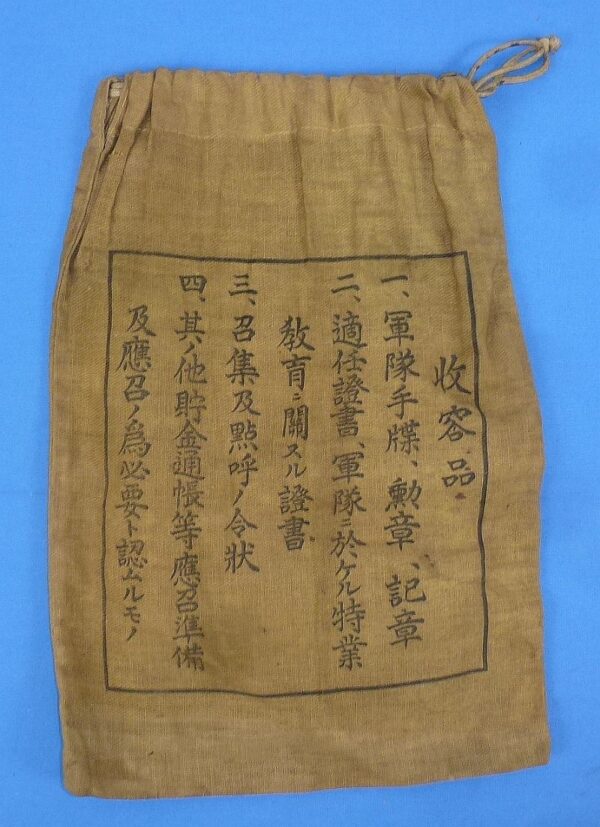 收容品
一、軍隊手牒、勲章、記章
二、適任證書、軍隊ニ於ケル特業
教育ニ關スル證書
三、召集及點呼ノ令狀
四、其ノ他貯金通帳等應召準備
及應召ノ爲必要ト認ムルモノ